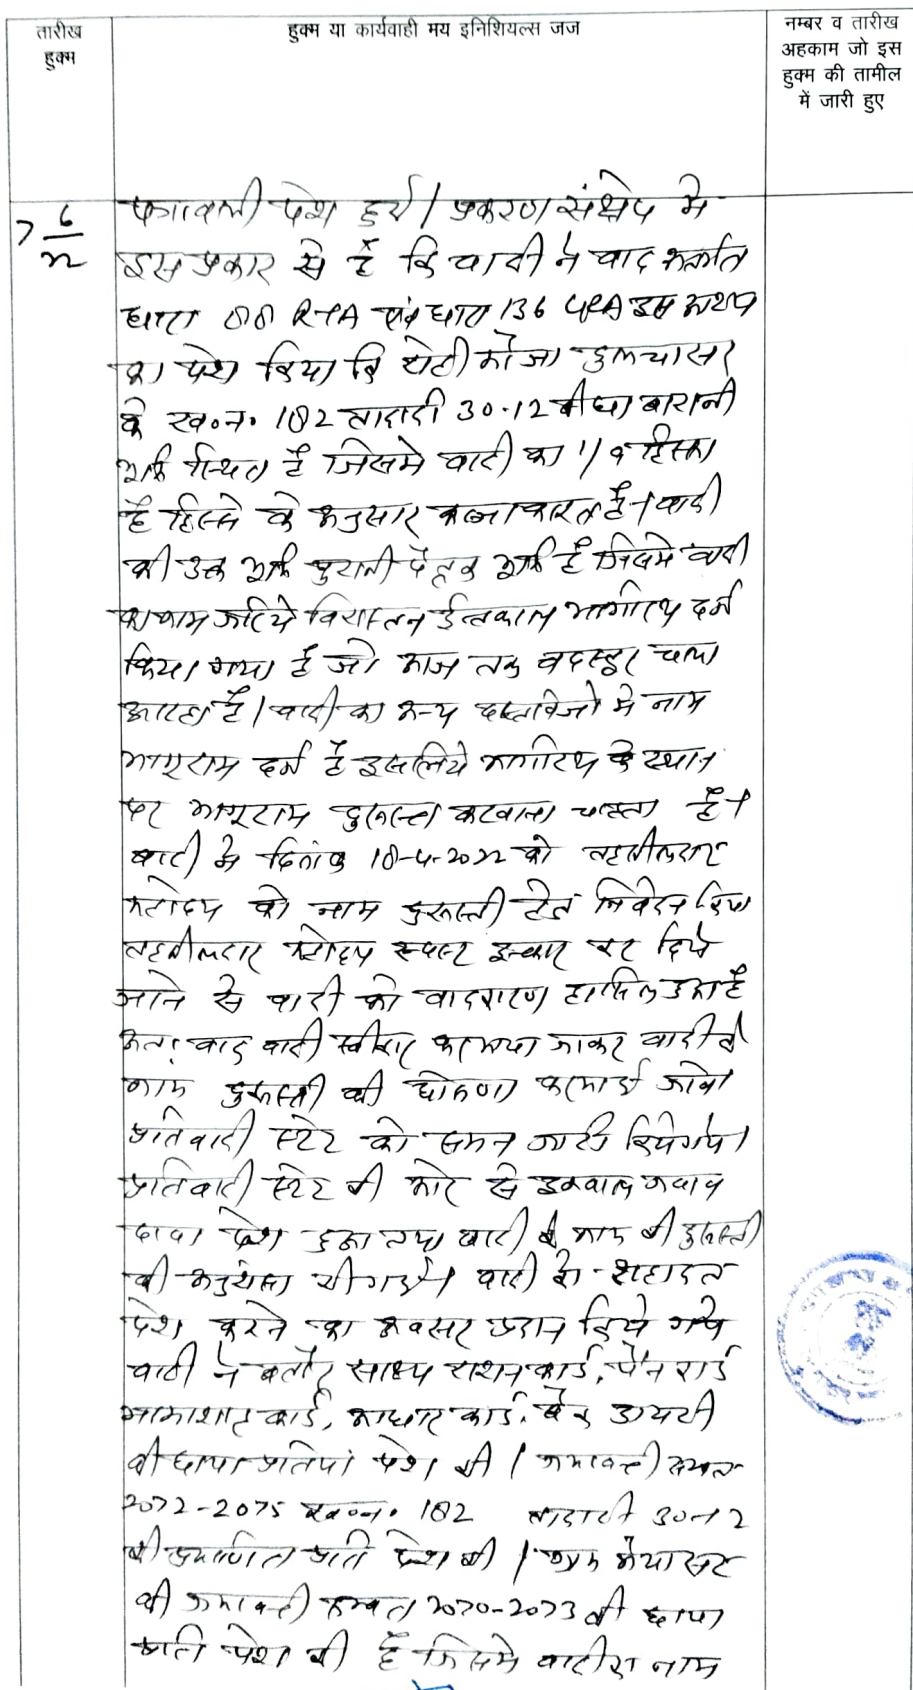 तारीख
हुक्म
हुक्म या कार्यवाही मय इनिशियल्स जज
नम्बर व तारीख
अहकाम जो इस
हुक्म की तामील
में जारी हुए
पत्रावली पेश हुई। प्रकरण संक्षेप मे
इस प्रकार से है कि वादी ने वाद अन्तर्गत
धारा 88 RTA एवं धारा 136 LRA इस आशय
का पेश किया कि रोही मौजा
के ख.न. 182 तादादी 30.12 बीघा बारानी
भूमि स्थित है जिसमे वादी का 1/9 हिस्सा
है हिस्से के अनुसार कब्जा काश्त है। वादी
की उक्त भूमि पुरानी पैतृक भूमि है जिसमे वादी
का नाम जरिये विरासतन ईन्तकाल भागीरथ दर्ज
किया गया है जो आज तक बदस्तूर चला
आ रहा है। वादी का अन्य दस्तावेजो मे नाम
भागुराम दर्ज है इसलिये भागीरथ के स्थान
पर भागुराम दुरूस्त करवाना चाहता है।
वादी ने दिनांक 18-4-2022 को तहसीलदार
महोदय को नाम दुरूस्ती हेतु निवेदन किया
तहसीलदार महोदय स्पष्ट इन्कार कर दिये
जाने से वादी को वादकारण हासिल हुआ है
अतः वाद वादी स्वीकार फरमाया जाकर वादी के
नाम दुरूस्ती की घोषणा फरमाई जावे।
प्रतिवादी स्टेट को समन जारी किये गये।
प्रतिवादी स्टेट की ओर से इकबाल जवाब
दावा पेश हुआ तथा वादी के नाम की दुरूस्ती
की अनुशंसा की गई। वादी को शहादत
पेश करने का अवसर प्रदान किये गये
वादी ने बतौर साक्ष्य राशन कार्ड, पैन कार्ड
भामाशाह कार्ड, आधार कार्ड, बैंक डायरी
की छाया प्रतियां पेश की। जमाबन्दी सम्वत
2072-2075 ख.न. 182 तादादी 30.12
की प्रमाणित प्रति पेश की। ग्राम
की जमाबन्दी सम्वत 2070-2073 की छाया
प्रति पेश की है जिसमे वादी का नाम